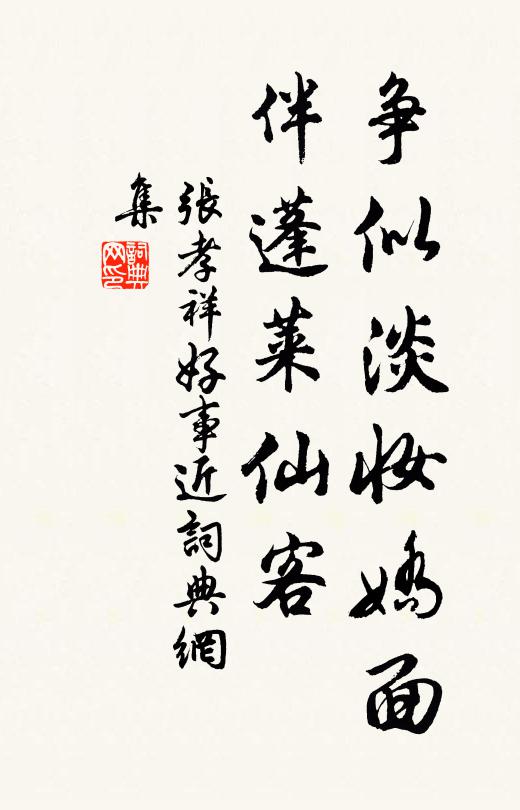 争似淡妆嬌面
伴蓬莱仙客
張孝祥好事近詞典網
集
詞典
网印